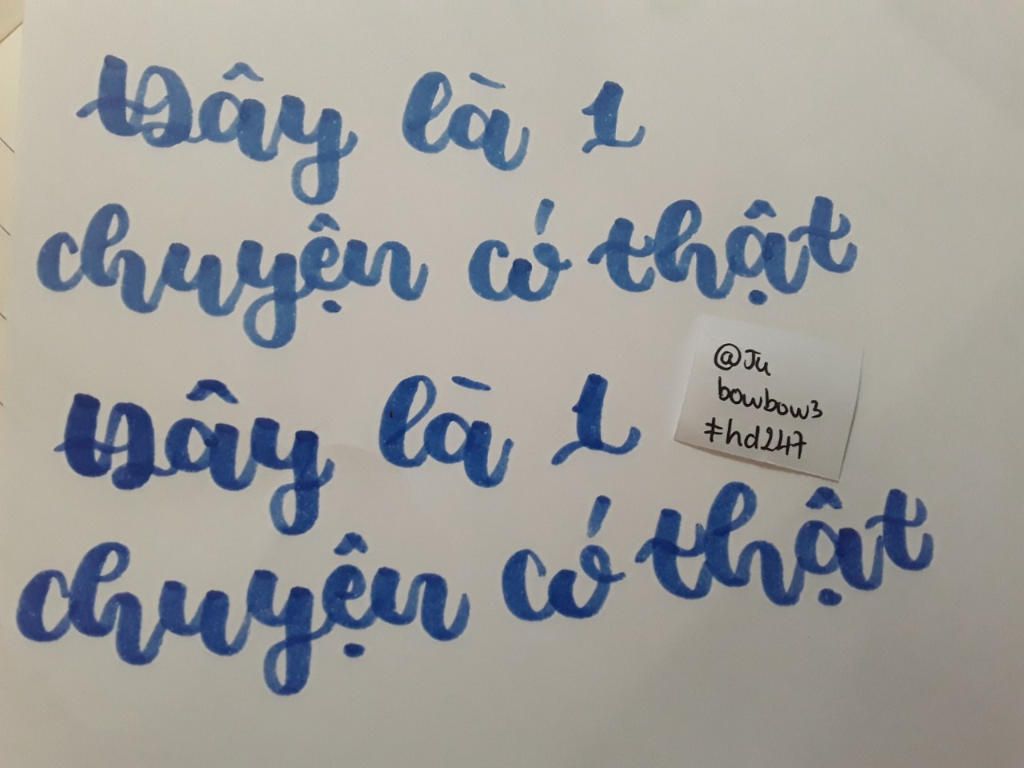 Đây là 1
chuyện có thật
@Ju
bowbow3
#hd247
Đây là 1
chuyện có thật